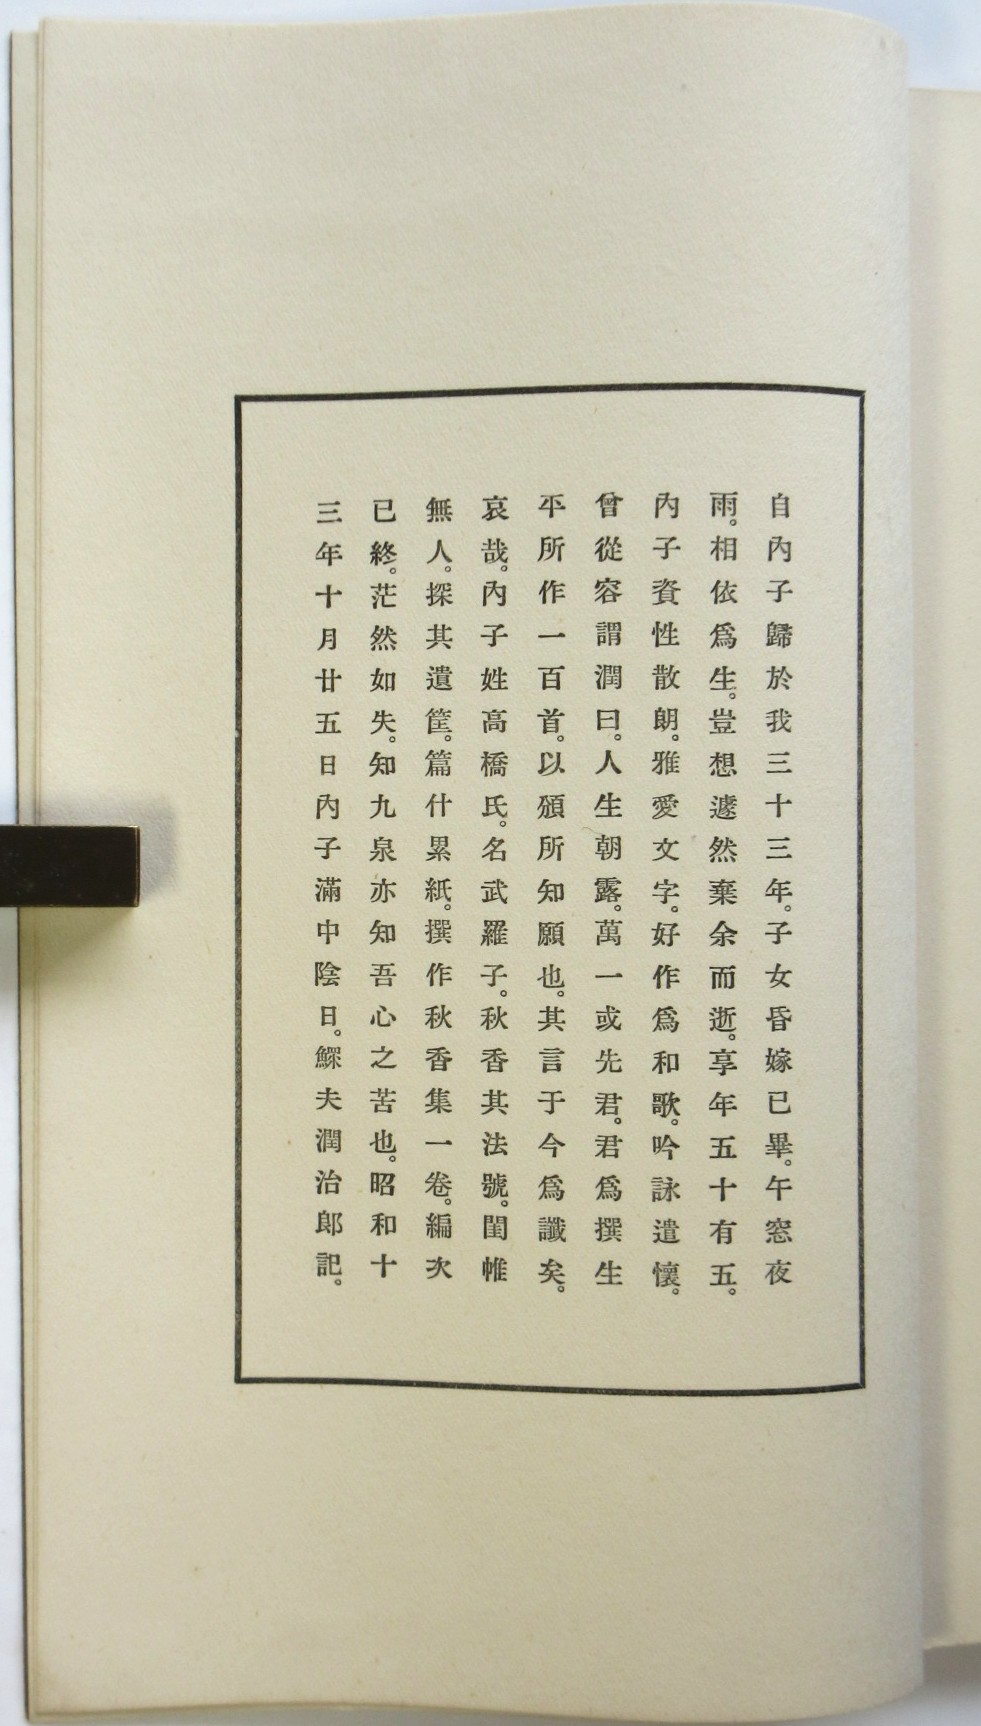 自內子歸於我三十三年。子女昏嫁已畢。午窓夜
雨。相依爲生。豈想遽然棄余而逝。享年五十有五。
內子資性散朗。雅愛文字。好作爲和歌。吟詠遣懷。
曾從容謂潤曰。人生朝露。萬一或先君。君爲撰生
平所作一百首。以頒所知願也。其言于今爲讖矣。
哀哉。內子姓高橋氏。名武羅子。秋香其法號。閨帷
無人。探其遺筐。篇什累紙。撰作秋香集一卷。編次
已終。茫然如失。知九泉亦知吾心之苦也。昭和十
三年十月廿五日內子滿中陰日。鰥夫潤治郎記。